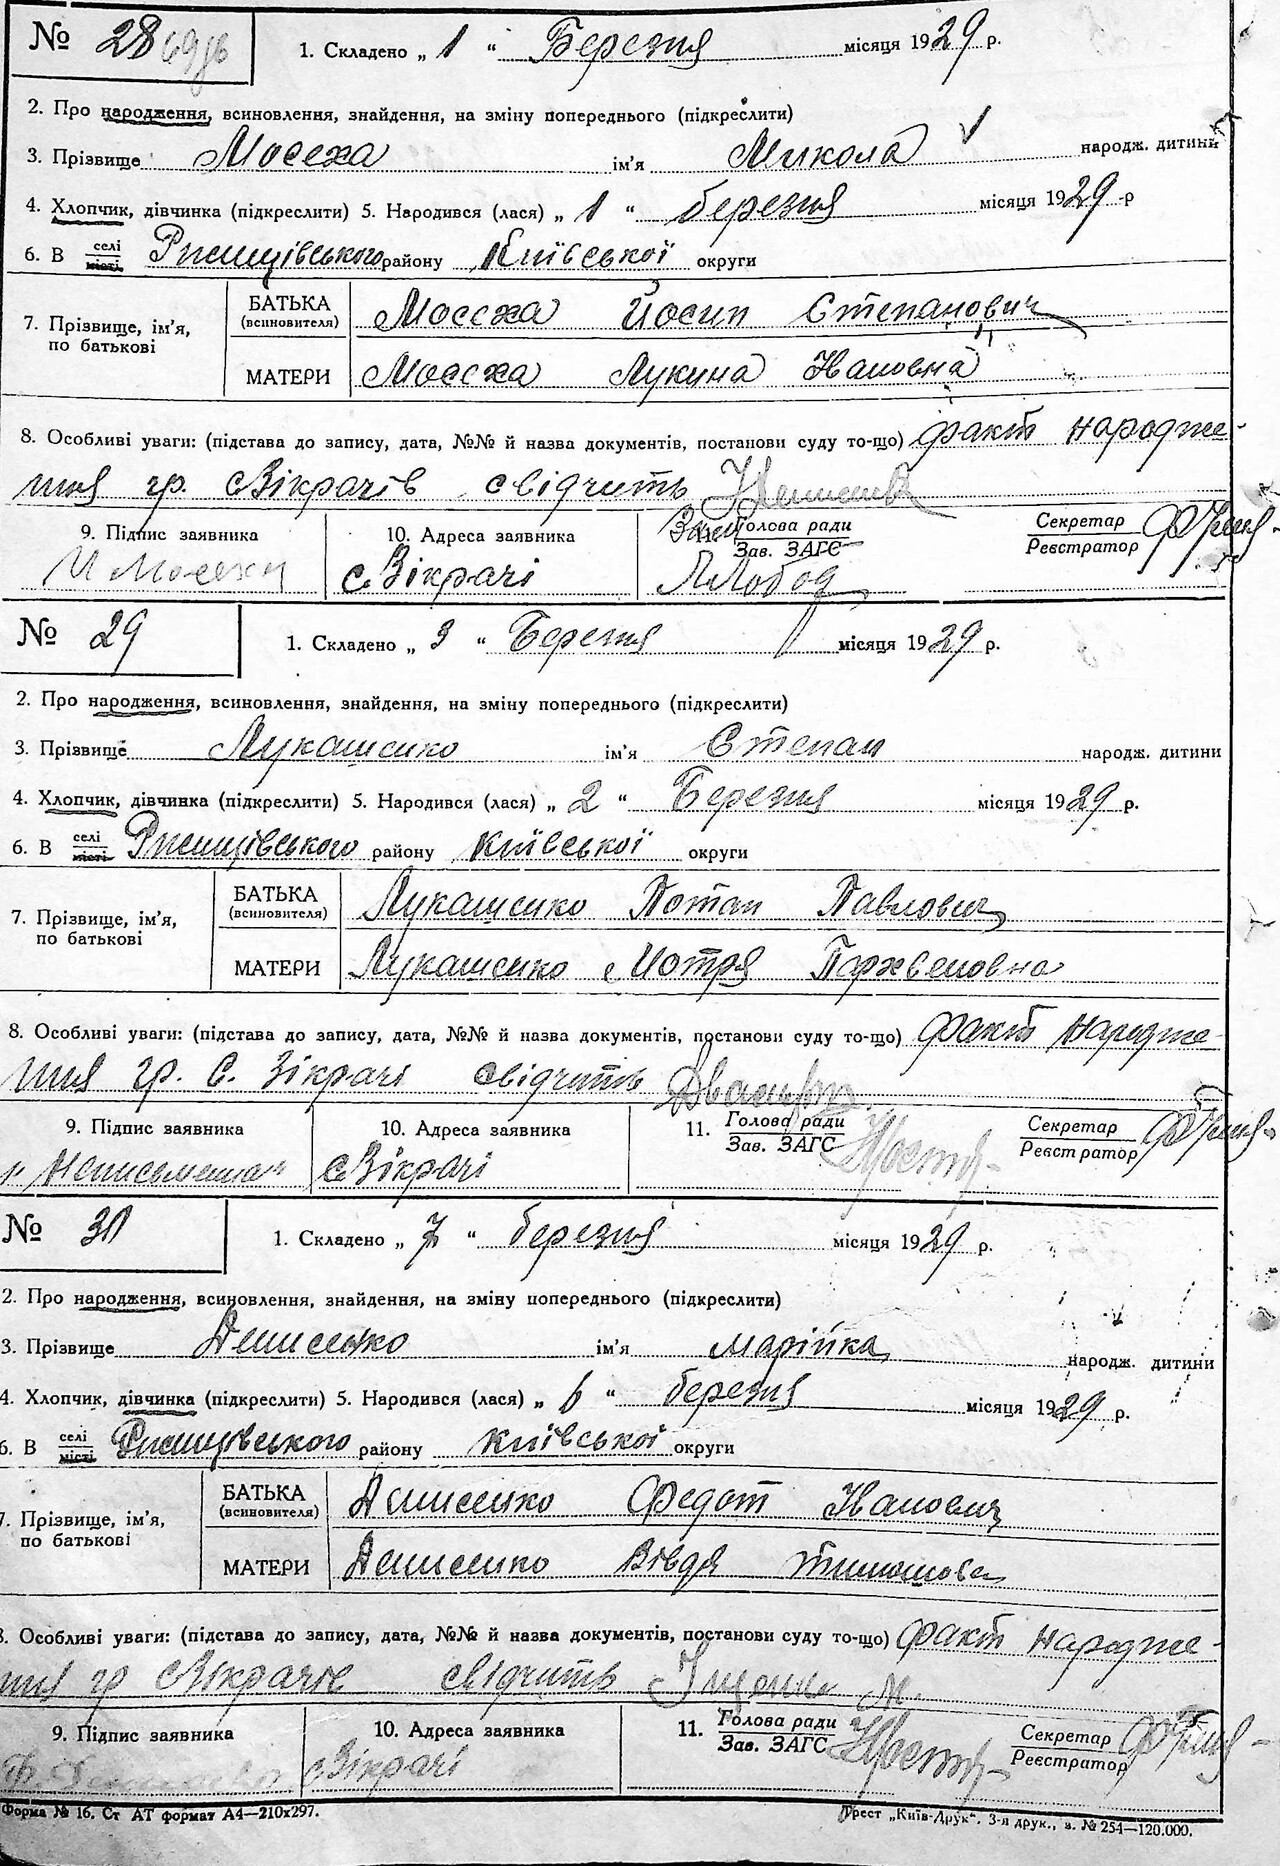 № 28
1. Складено „ 1 “ Березня місяця 1929 р.
2. Про народження, всиновлення, знайдення, на зміну попереднього (підкреслити)
3. Прізвище Мосеха ім'я Микола народж. дитини
4. Хлопчик, дівчинка (підкреслити) 5. Народився (лася) „ 1 “ березня місяця 1929 р
6. В селі місті Ржищівського району Київської округи
7. Прізвище, ім'я, по батькові
БАТЬКА (всиновителя) Мосеха Йосип Степанович
МАТЕРИ Мосеха Лукина Івановна
8. Особливі уваги: (підстава до запису, дата, №№ й назва документів, постанови суду то-що) факт народже-
ння гр. с Вікрачів свідчить
9. Підпис заявника 10. Адреса заявника 11. Голова ради Зав. ЗАГС Секретар Реєстратор
И Мосеха с Вікрачі
№ 29
1. Складено „ 3 “ Березня місяця 1929 р.
2. Про народження, всиновлення, знайдення, на зміну попереднього (підкреслити)
3. Прізвище Лукашенко ім'я Степан народж. дитини
4. Хлопчик, дівчинка (підкреслити) 5. Народився (лася) „ 2 “ Березня місяця 1929 р.
6. В селі місті Ржищівського району Київської округи
7. Прізвище, ім'я, по батькові
БАТЬКА (всиновителя) Лукашенко Потап Павлович
МАТЕРИ Лукашенко Мотря Пархвеновна
8. Особливі уваги: (підстава до запису, дата, №№ й назва документів, постанови суду то-що) факт народже-
ння гр. с. Вікрачі свідчить
9. Підпис заявника 10. Адреса заявника 11. Голова ради Зав. ЗАГС Секретар Реєстратор
„Неписьменна“ с Вікрачі
№ 31
1. Складено „ 7 “ березня місяця 1929 р.
2. Про народження, всиновлення, знайдення, на зміну попереднього (підкреслити)
3. Прізвище Денисенко ім'я Марійка народж. дитини
4. Хлопчик, дівчинка (підкреслити) 5. Народився (лася) „ 6 “ березня місяця 1929 р.
6. В селі місті Ржищівського району Київської округи
7. Прізвище, ім'я, по батькові
БАТЬКА (всиновителя) Денисенко Федот Іванович
МАТЕРИ Денисенко Вівдя Тимошова
8. Особливі уваги: (підстава до запису, дата, №№ й назва документів, постанови суду то-що) факт народже-
ння гр с Вікрачів свідчить
9. Підпис заявника 10. Адреса заявника 11. Голова ради Зав. ЗАГС Секретар Реєстратор
с Вікрачі
Форма № 16. Ст АТ формат А4—210х297.
Трест „Київ-Друк“. 3-я друк., з. № 254—120.000.